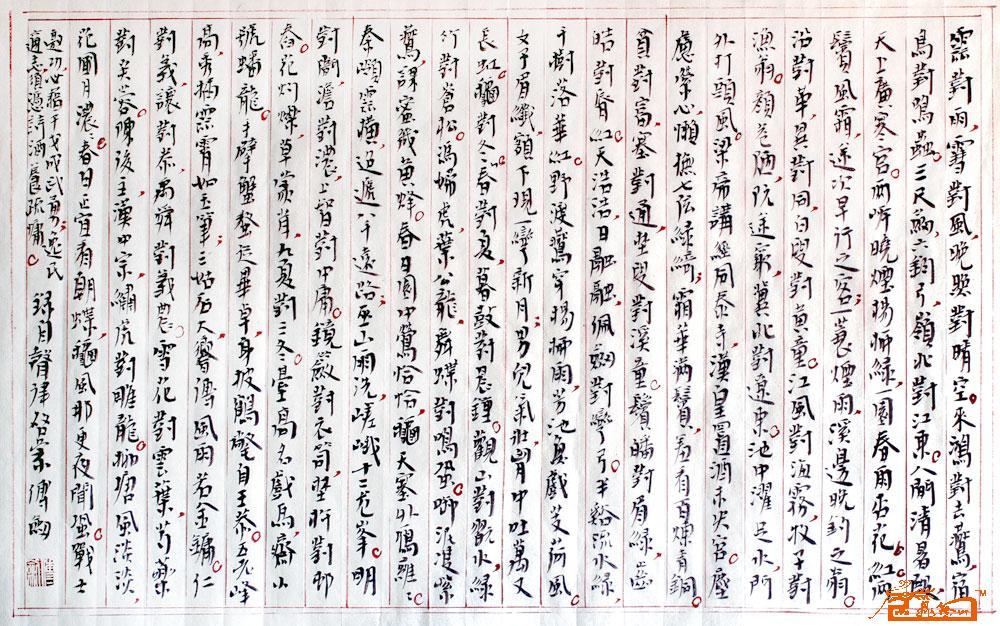 雲對雨，雪對風，晚照對晴空。來鴻對去鷰，宿
鳥對鳴蟲。三尺劍，六鈞弓，嶺北對江東。人間清暑殿，
天上廣寒宮。兩岸曉煙楊柳綠，一園春雨杏花紅。兩
鬢風霜，途次早行之客；一蓑煙雨，溪邊晚釣之翁。
沿對革，異對同，白叟對黃童。江風對海霧，牧子對
漁翁。顏巷陋，阮途窮，冀北對遼東。池中濯足水，門
外打頭風。梁帝講經同泰寺，漢皇置酒未央宮。塵
慮縈心，懶撫七弦綠綺；霜華滿鬢，羞看百煉青銅。
貧對富，塞對通，野叟對溪童。鬢皤對眉綠，齒
皓對唇紅。天浩浩，日融融，佩劍對彎弓。半谿流水綠，
千樹落華紅。野渡鷰穿楊柳雨，芳池魚戲芰荷風。
女子眉纖，額下現一彎新月；男兒氣壯，胸中吐萬丈
長虹。秋對冬，春對夏，暮鼓對晨鍾。觀山對翫水，綠
竹對蒼松。馮婦虎，葉公龍，舞蝶對鳴蛩。啣泥雙紫
鷰，課蜜幾黃蜂。春日園中鶯恰恰，秋天塞外鴈雝雝。
秦嶺雲橫，迢遞八千遠路；巫山雨洗，嵯峨十二危峯。明
對闇，澹對濃，上智對中庸。鏡奩對衣笥，野杵對邨
舂。花灼爍，草蒙茸，九夏對三冬。臺高名戲馬，齋小
號蟠龍。手擘蟹螯從畢卓，身披鶴氅自王恭。五老峰
高，秀插雲霄如玉筆；三姑石大，響傳風雨若金鏞。仁
對義，讓對恭，禹舜對羲農。雪花對雲葉，芍藥
對芙蓉。陳後主，漢中宗，繡虎對雕龍。柳塘風淡淡，
花圃月濃濃。春日正宜看朝蝶，秋風那更夜聞蛩。戰士
邀功，必藉干戈成武勇；逸民
適志，須憑詩酒養疏慵。
錄自聲律啟蒙 傅劍